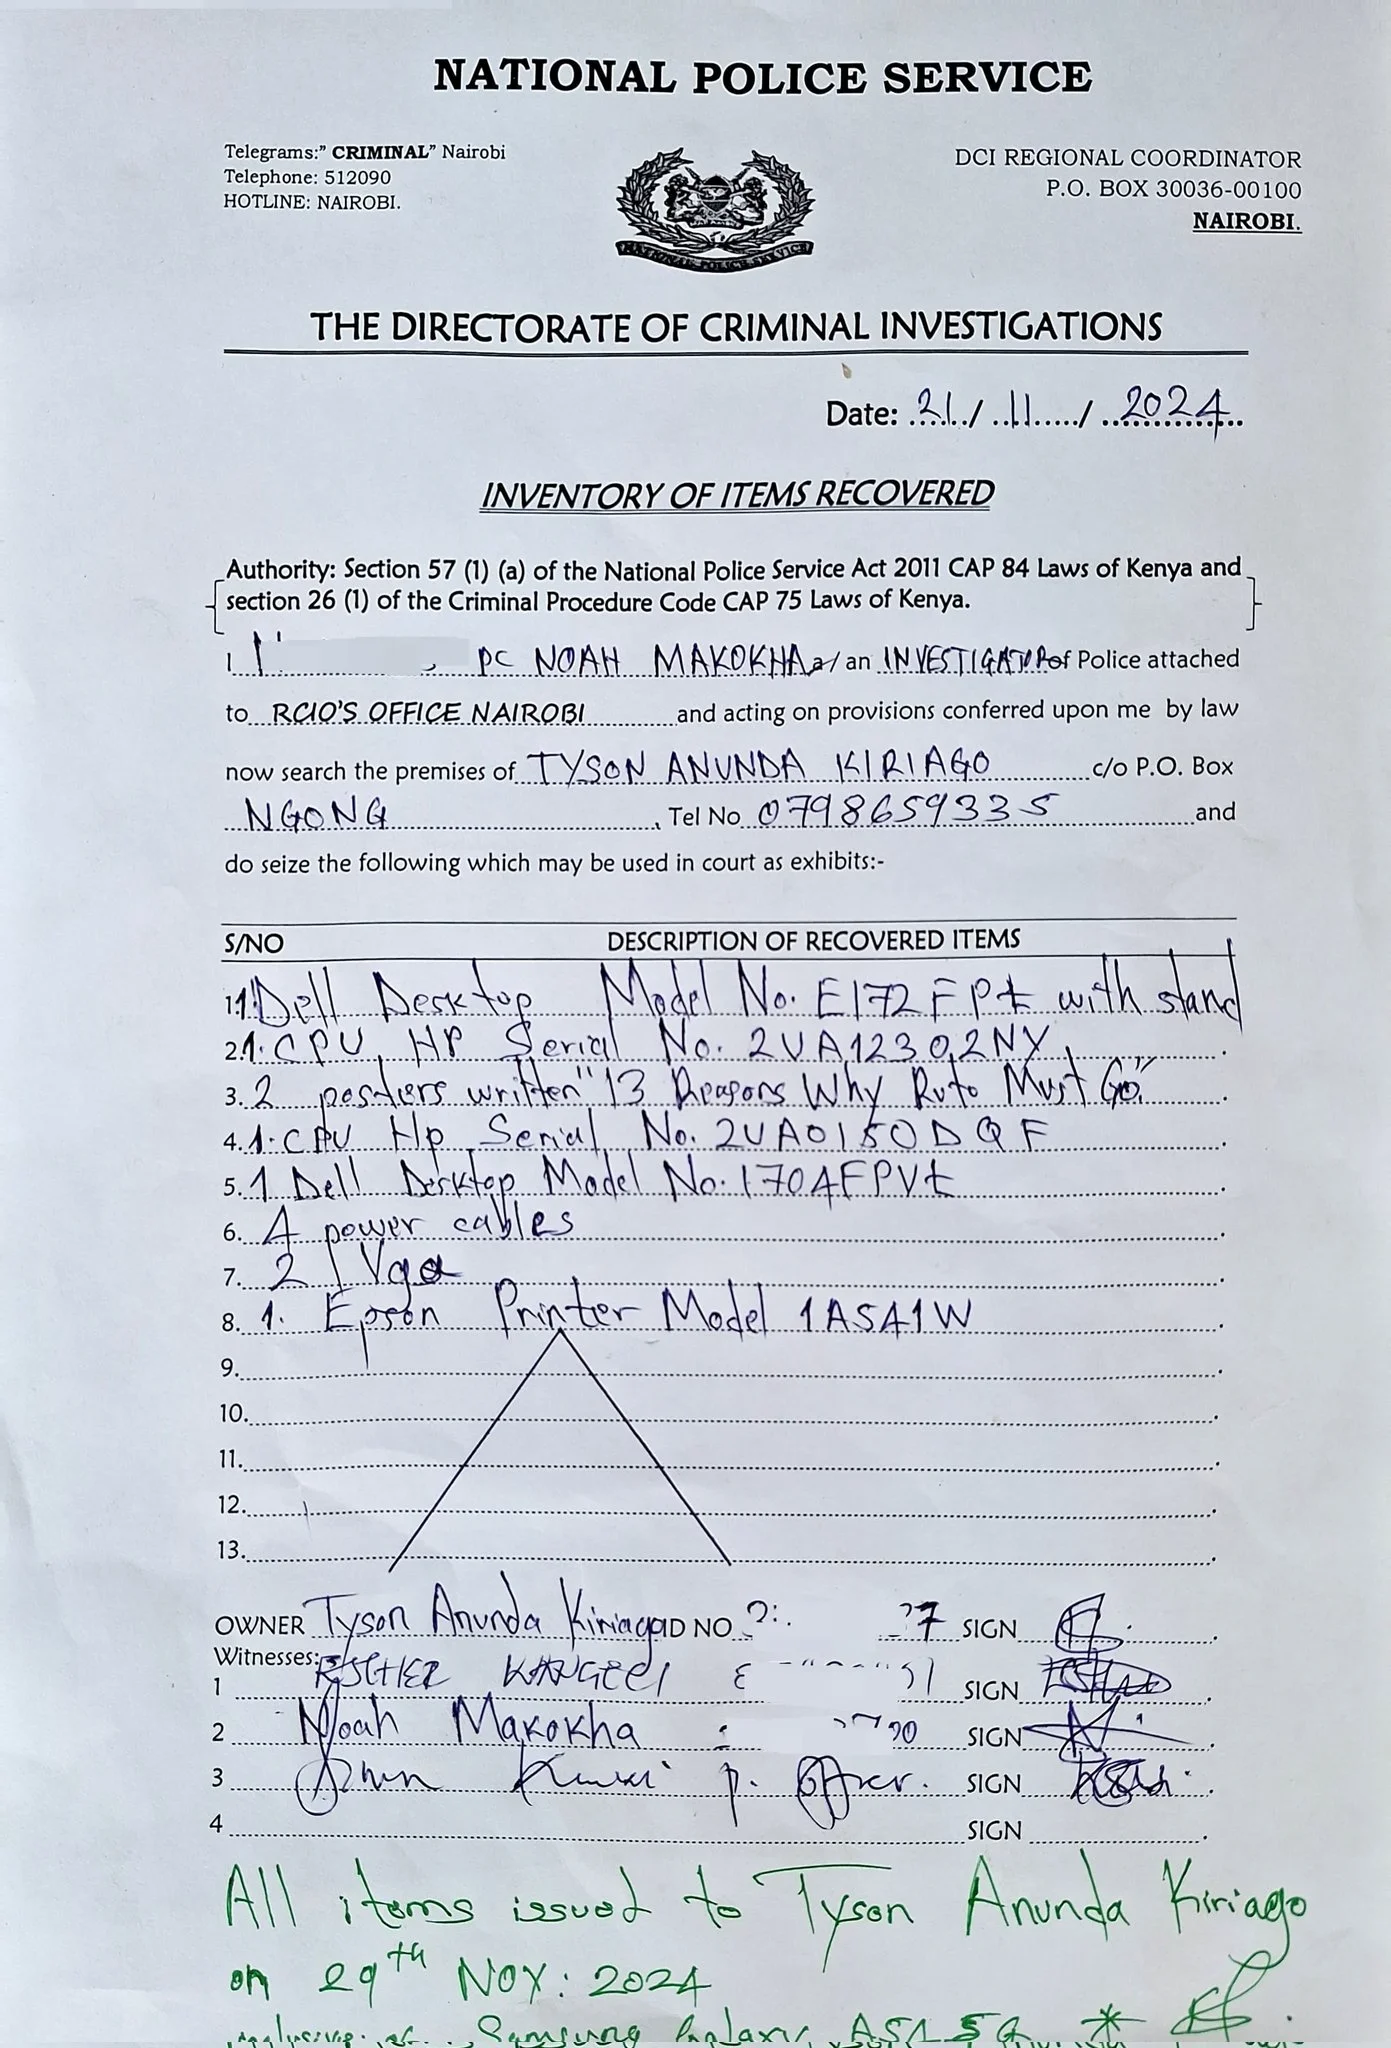 NATIONAL POLICE SERVICE
Telegrams:" CRIMINAL" Nairobi
Telephone: 512090
HOTLINE: NAIROBI.
DCI REGIONAL COORDINATOR
P.O. BOX 30036-00100
NAIROBI.
NATIONAL POLICE SERVICE
THE DIRECTORATE OF CRIMINAL INVESTIGATIONS
Date: 21/ 11/ 2024
INVENTORY OF ITEMS RECOVERED
Authority: Section 57 (1) (a) of the National Police Service Act 2011 CAP 84 Laws of Kenya and
section 26 (1) of the Criminal Procedure Code CAP 75 Laws of Kenya.
I PC NOAH MAKOKHA a/ an INVESTIGATOR of Police attached
to RCIO'S OFFICE NAIROBI and acting on provisions conferred upon me by law
now search the premises of TYSON ANUNDA KIRIAGO c/o P.O. Box
NGONG, Tel No 0798659335 and
do seize the following which may be used in court as exhibits:-
S/NO DESCRIPTION OF RECOVERED ITEMS
1. 1 Dell Desktop Model No. E172FPt with stand
2. 1. CPU HP Serial No. 2UA12302NY
3. 2 posters written "13 Reasons Why Ruto Must Go"
4. 1. CPU Hp Serial No. 2UA0150DQF
5. 1 Dell Desktop Model No. 1704FPVt
6. 4 power cables
7. 2 Vga
8. 1. Epson Printer Model 1AS41W
9.
10.
11.
12.
13.
OWNER Tyson Anunda Kiriago ID NO 7 SIGN
Witnesses:
1 SIGN
2 Noah Makokha SIGN
3 SIGN
4 SIGN
All items issued to Tyson Anunda Kiriago
on 29th NOV: 2024
Samsung 5G *